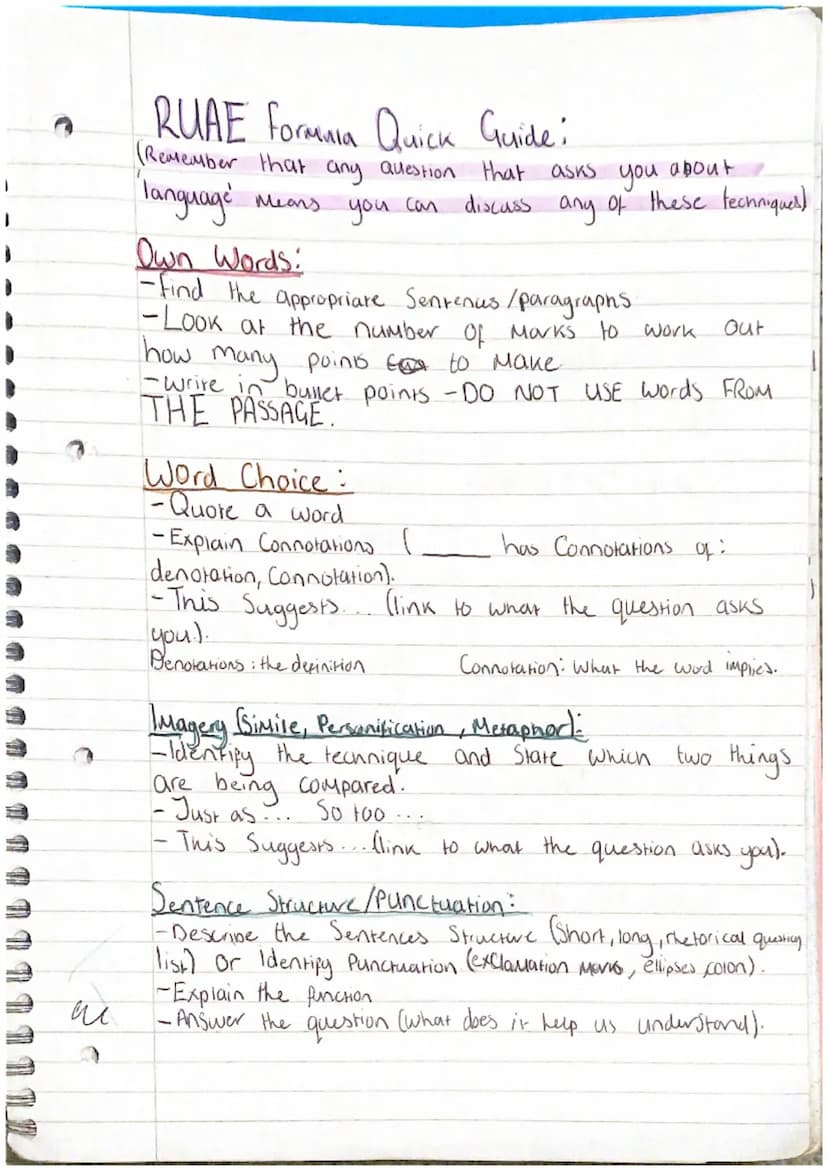 RUAE Formula Quick Guide:
(Remember that any question that asks you about
'language' means you can discuss any of these techniques)
Own Words:
-Find the appropriate Sentences/paragraphs
-Look at the number of marks to work out
how many points to make
-write in bullet points -DO NOT USE words FROM
THE PASSAGE.
Word Choice:
-Quote a word
-Explain Connotations ( _____ has Connotations of:
denotation, Connotation).
-This Suggests... (link to what the question asks
you.).
Denotations: the definition Connotation: What the word implies.
Imagery (Simile, Personification, Metaphor):
-Identify the technique and State which two things
are being compared.
- Just as... So too ...
- This Suggests... (link to what the question asks you).
Sentence Structure/Punctuation:
-Describe the Sentences Structure (Short, long, rhetorical question
list) or Identify Punctuation (exclamation marks, ellipses, colon).
-Explain the function
-Answer the question (what does it help us understand).